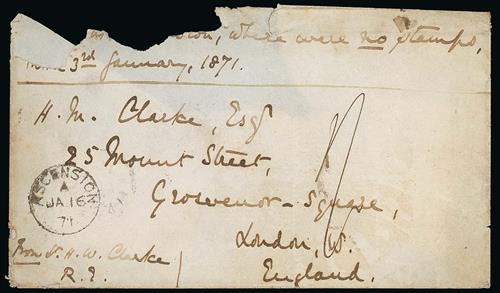 where were no stamps,
3rd January, 1871.
H. M. Clarke, Esqr
25 Mount Street,
Grosvenor - Square,
London, W.
England.
ASCENSION
A
JA 16
71
From Lt. H. W. Clarke
R. E.